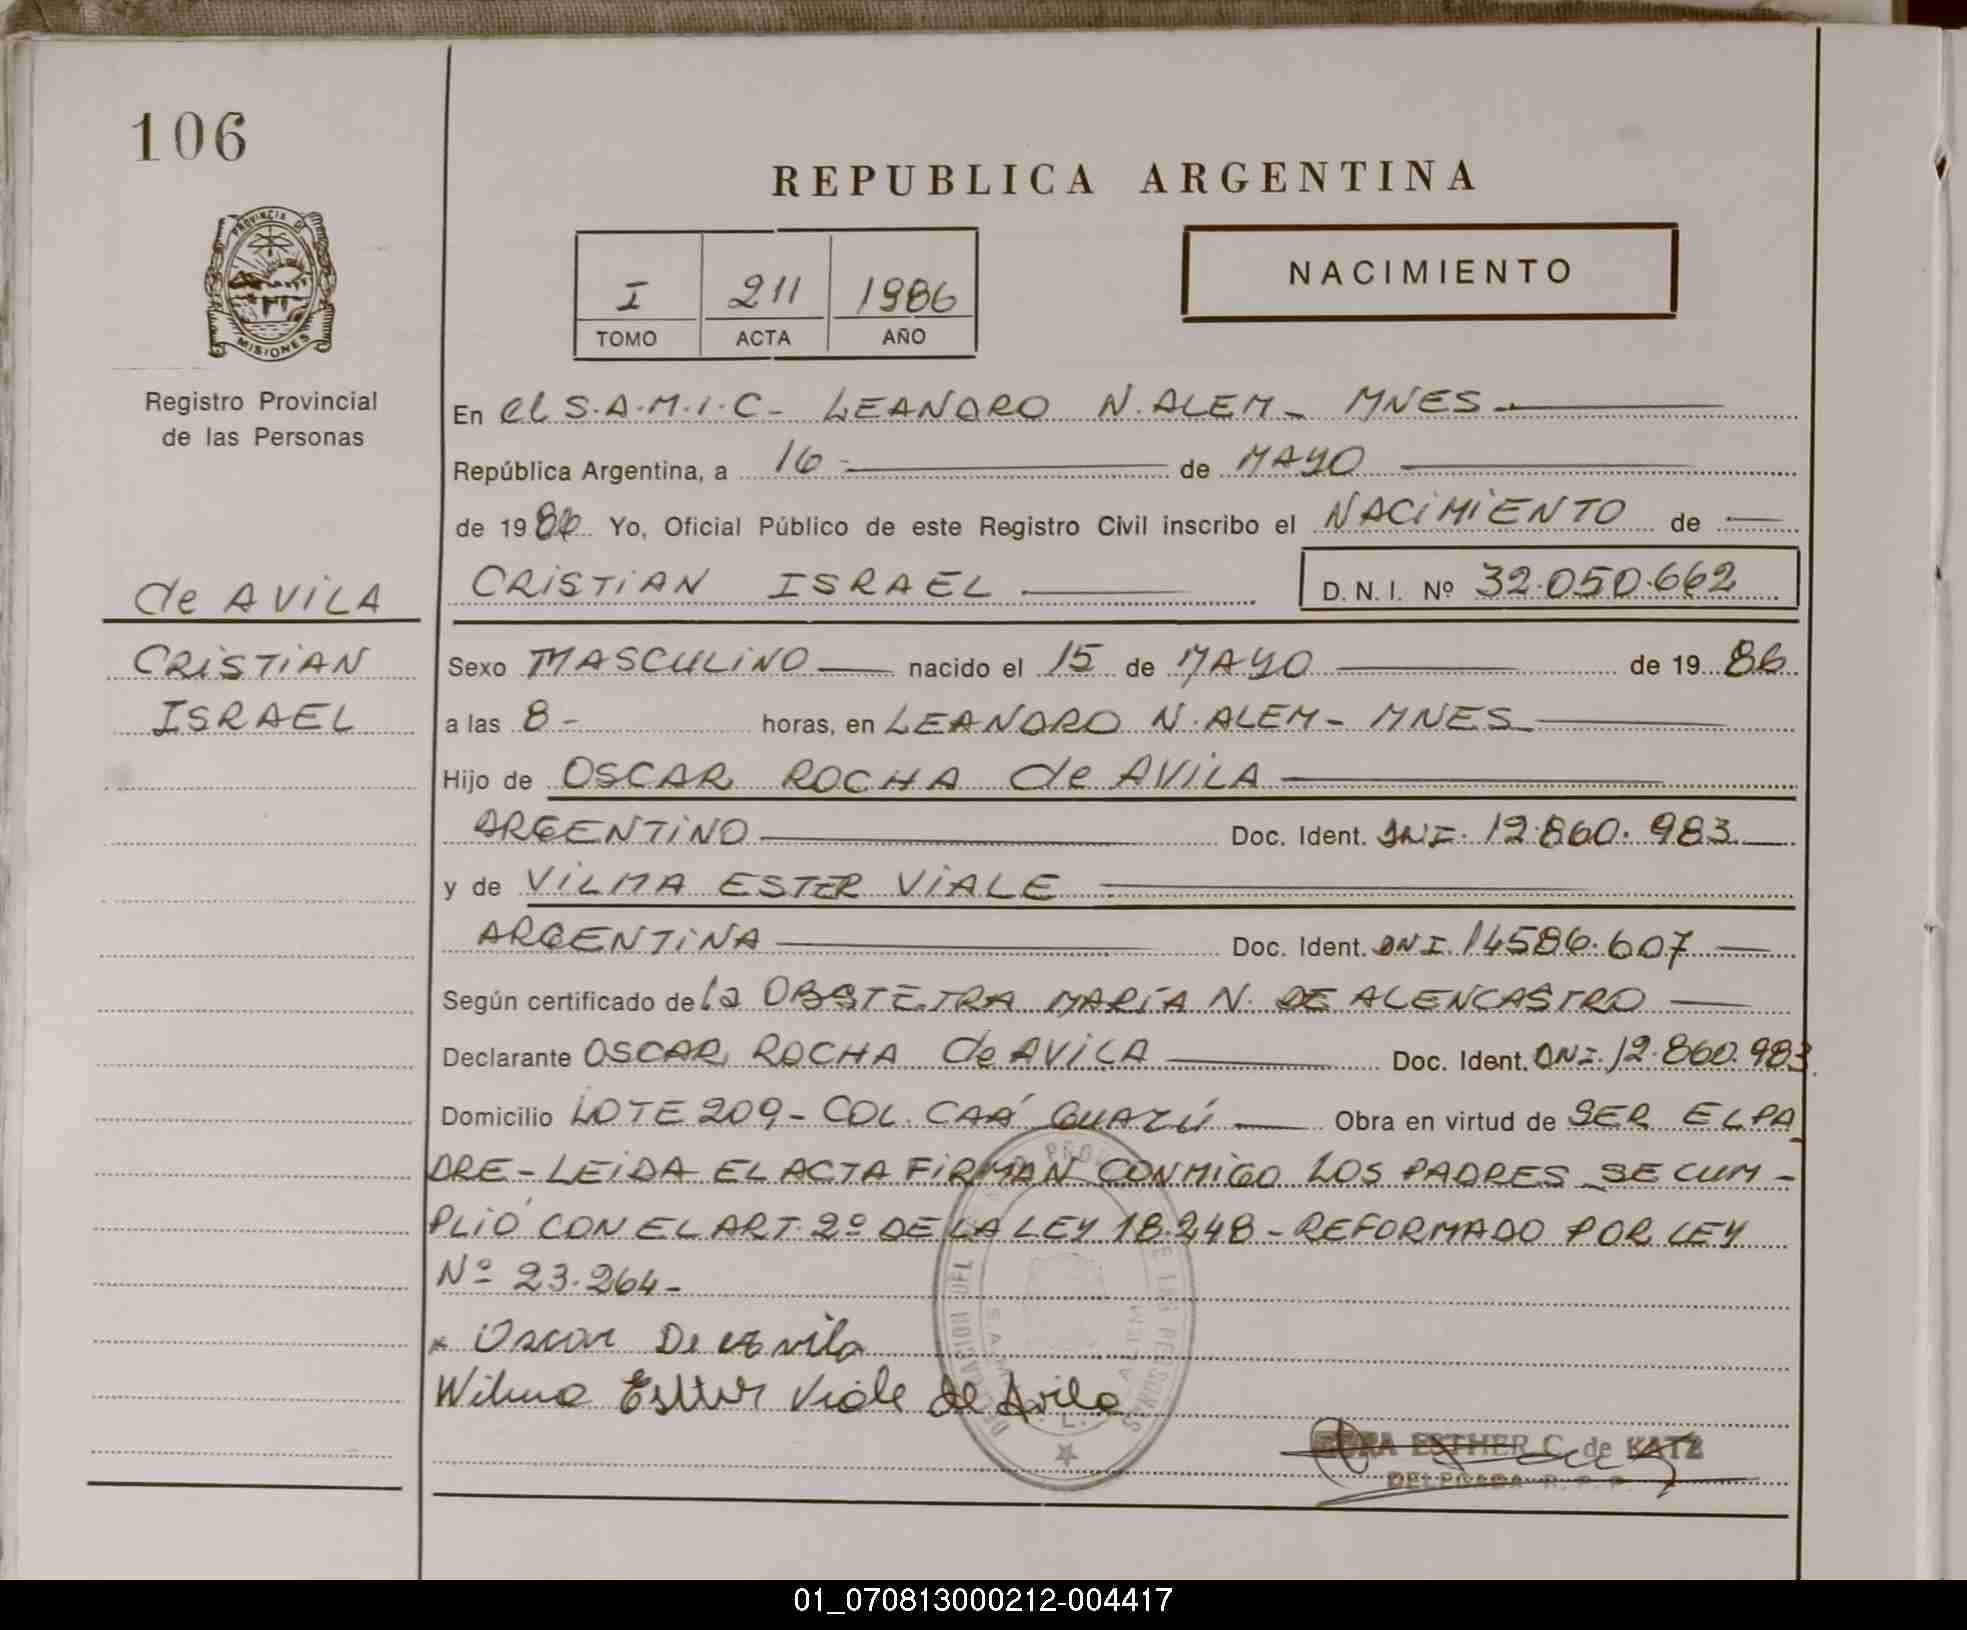 106
REPUBLICA ARGENTINA
PROVINCIA D
MISIONES
Registro Provincial
de las Personas
I 211 1986
TOMO ACTA AÑO
NACIMIENTO
En el S.A.M.I.C- LEANDRO N. ALEM- MNES-
República Argentina, a 16- de MAYO
de 1986 Yo, Oficial Público de este Registro Civil inscribo el NACIMIENTO de
CRISTIAN ISRAEL D. N. I. Nº 32.050.662
de AVILA
CRISTIAN
ISRAEL
Sexo MASCULINO nacido el 15 de MAYO de 1986
a las 8- horas, en LEANDRO N. ALEM- MNES
Hijo de OSCAR ROCHA de AVILA
ARGENTINO Doc. Ident. DNI. 12.860.983
y de VILMA ESTER VIALE
ARGENTINA Doc. Ident. DNI. 14586.607
Según certificado de la OBSTETRA MARÍA N. DE ALENCASTRO
Declarante OSCAR ROCHA de AVILA Doc. Ident. DNI. 12.860.983
Domicilio LOTE 209- COL. CAÁ GUAZÚ Obra en virtud de SER EL PA
DRE- LEIDA EL ACTA FIRMAN CONMIGO LOS PADRES SE CUM-
PLIÓ CON EL ART. 2º DE LA LEY 18.248- REFORMADO POR LEY
Nº 23.264-
Oscar De Avila
Wilma Esther Viale de Avila
ESTHER C. de KATZ
DELEGADA R. P. P.
01_070813000212-004417